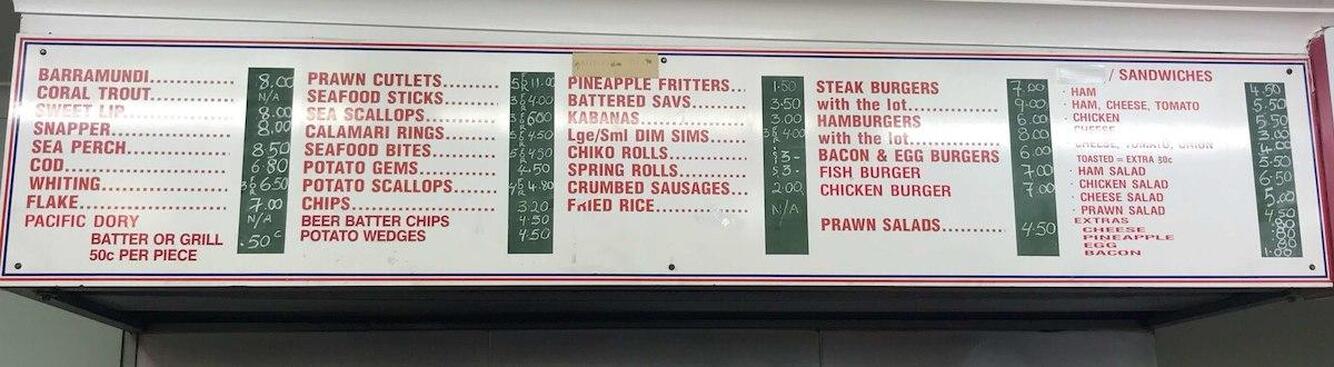 BARRAMUNDI.............. 8.00
CORAL TROUT.............. N/A
SWEET LIP.............. 8.00
SNAPPER.............. 8.00
SEA PERCH.............. 8.50
COD.............. 6.80
WHITING.............. 6.50
FLAKE.............. 7.00
PACIFIC DORY N/A
BATTER OR GRILL .50c
50c PER PIECE
PRAWN CUTLETS.............. 11.00
SEAFOOD STICKS.............. 4.00
SEA SCALLOPS.............. 6.00
CALAMARI RINGS.............. 4.50
SEAFOOD BITES.............. 4.50
POTATO GEMS.............. 4.50
POTATO SCALLOPS.............. 4.80
CHIPS.............. 3.20
BEER BATTER CHIPS 4.50
POTATO WEDGES 4.50
PINEAPPLE FRITTERS... 1.50
BATTERED SAVS.............. 3.50
KABANAS.............. 3.00
Lge/Sml DIM SIMS.............. 4.00
CHIKO ROLLS.............. 3-
SPRING ROLLS.............. 3-
CRUMBED SAUSAGES... 2.00
FRIED RICE.............. N/A
STEAK BURGERS 7.00
with the lot.............. 9.00
HAMBURGERS 6.00
with the lot.............. 8.00
BACON & EGG BURGERS 6.00
FISH BURGER 7.00
CHICKEN BURGER 7.00
PRAWN SALADS.............. 4.50
/ SANDWICHES
HAM 4.50
HAM, CHEESE, TOMATO 5.50
CHICKEN 5.50
CHEESE
CHEESE, TOMATO, ONION
TOASTED = EXTRA 30c
HAM SALAD 5.50
CHICKEN SALAD 6.50
CHEESE SALAD 5.00
PRAWN SALAD
EXTRAS
CHEESE
PINEAPPLE
EGG
BACON 1.00